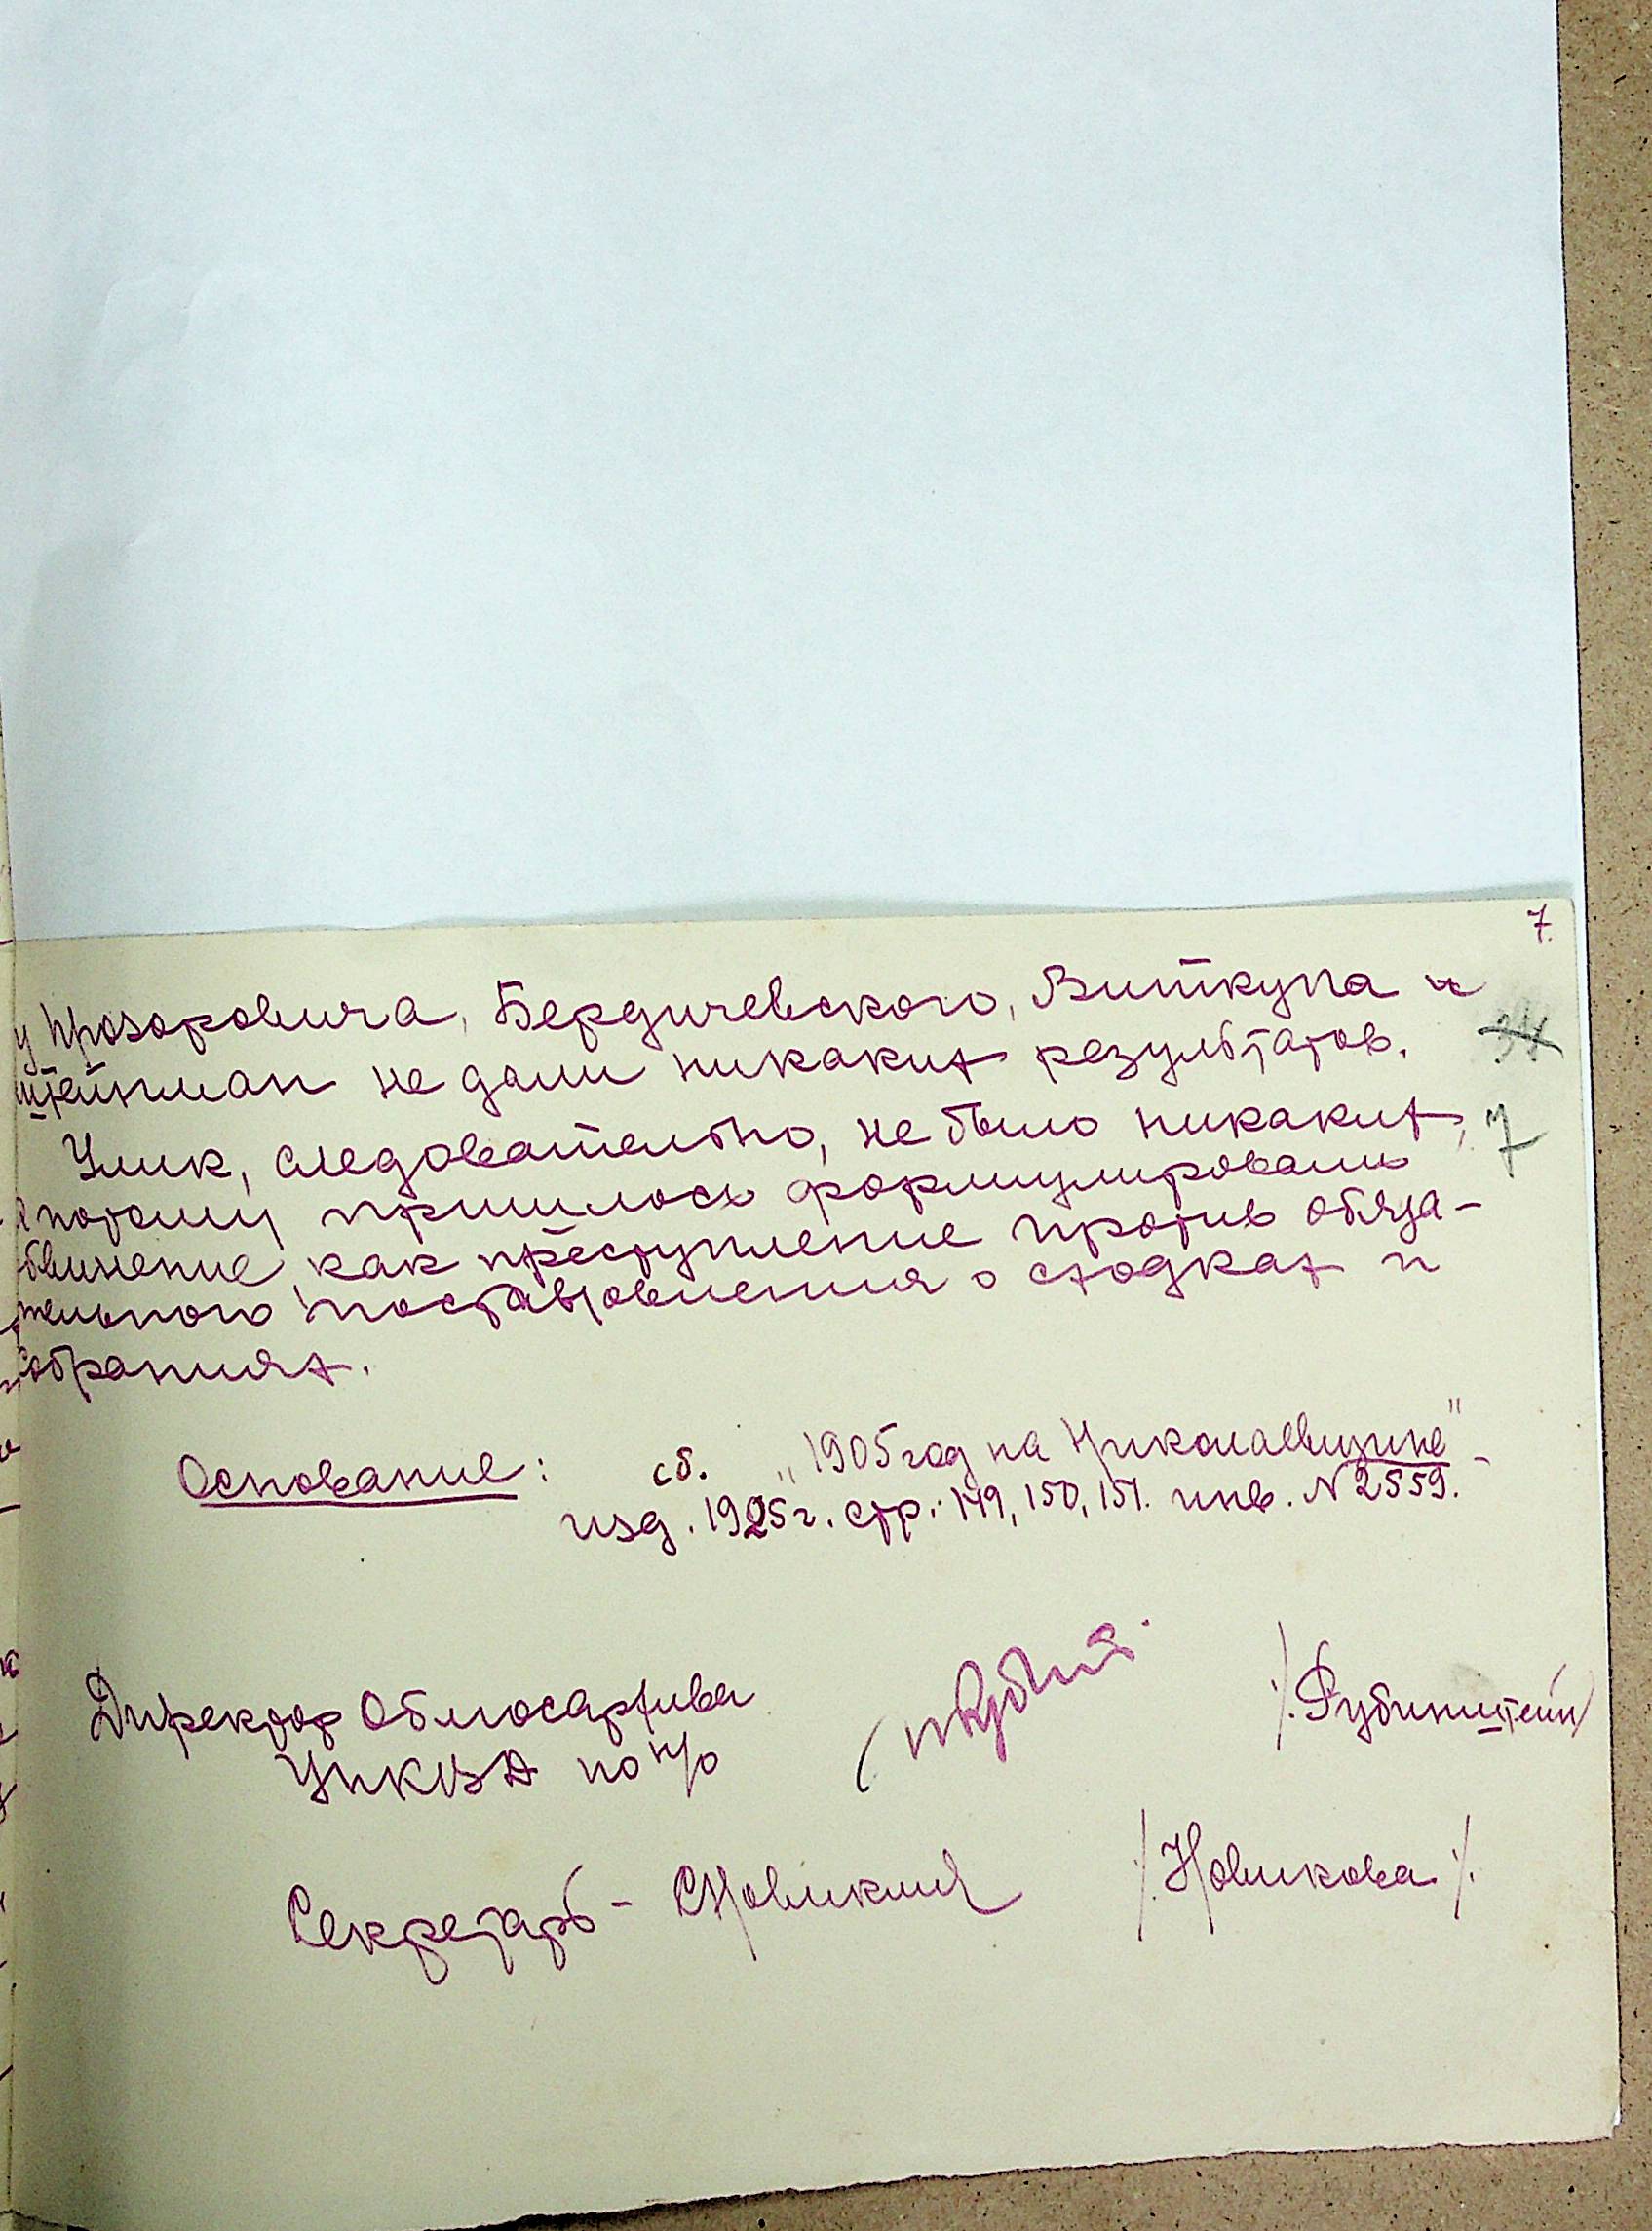 7.
у Прозоровича, Бердичевского, Виткупа и
Штейнман не дали никаких результатов.
34
Улик, следовательно, не было никаких,
7
а потому пришлось формулировать
обвинение как преступление против обяза-
тельного постановления о сходках и
собраниях.
Основание: сб. „1905 год на Николаевщине" -
изд. 1925 г. стр. 149, 150, 151. инв. N 2559.
Директор Облгосархива
УНКВД по н/о /Рубинштейн/
Секретарь - /Новикова/.